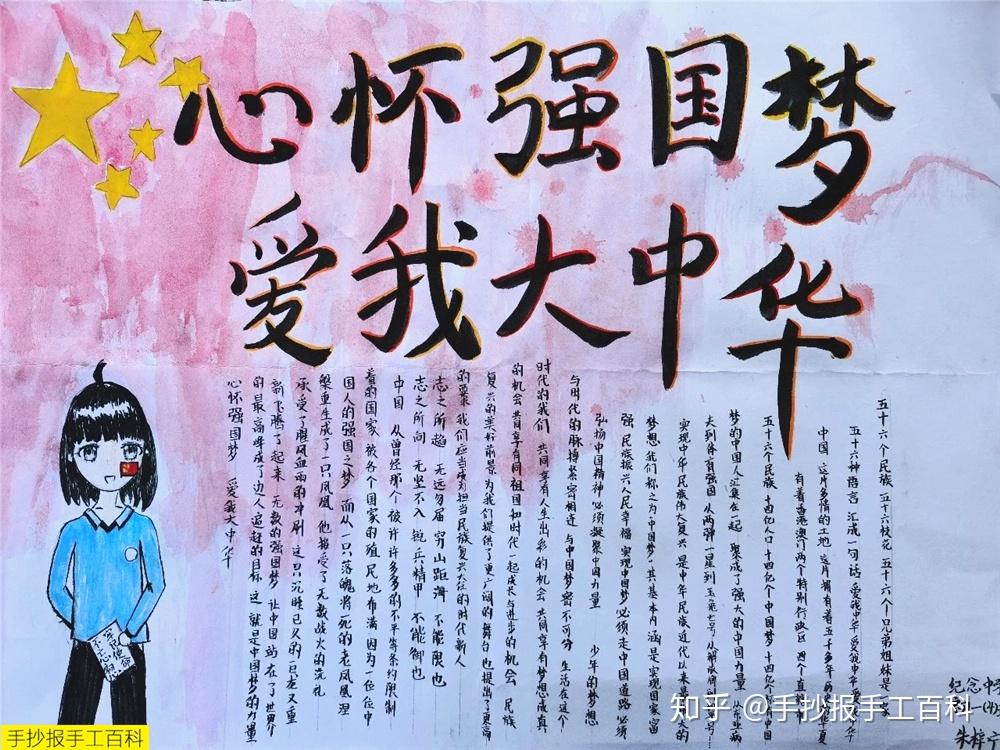 心怀强国梦
爱我大中华
五十六个民族 五十六枝花 五十六个兄弟姐妹是
五十六种语言 汇成一句话 爱我中华 爱我中华
中国 这片多情的土地 这片拥有着五千多年
有着香港澳门两个特别行政区 四个直辖
五十六个民族 十四亿人口 十四亿个中国梦 十四亿个
梦的中国人汇集在一起 聚成了强大的中国力量
夫到体育强国 从两弹一星到玉兔七号
实现中华民族伟大复兴 是中华民族近代以来 的
梦想 我们称之为“中国梦” 其基本内涵是实现国家富
强 民族振兴 人民幸福 实现中国梦必须走中国道路 必须
弘扬中国精神 必须凝聚中国力量 少年的梦想
与时代的脉搏紧密相连 与中国梦密不可分 生活在这个
时代的我们 共同享有人生出彩的机会 共同享有梦想成真
的机会 共享享有同祖国和时代一起成长与进步的机会 民族
复兴的美好前景为我们提供了更广阔的舞台 也提出了更高
的要求 我们应当成为担当民族复兴大任的时代新人
志之所趋 无远勿届 穷山距海 不能限也
志之所向 无坚不入 锐兵精甲 不能御也
中国 从曾经那个被许许多多的不平等条约限制
着的国家 被各个国家的殖民地布满 因为一位位中
国人的强国之梦 而从一只落魄将死的老凤凰涅
槃重生成了一只凤凰 他接受了无数战火的洗礼
承受了腥风血雨的冲刷 这只沉睡已久的一只龙又重
新飞腾了起来 无数的强国梦 让中国站在了世界
的最高峰 成了边人追赶的目标 这就是中国梦的力量
心怀强国梦 爱我大中华
纪念中学
知乎 @手抄报手工百科
手抄报手工百科